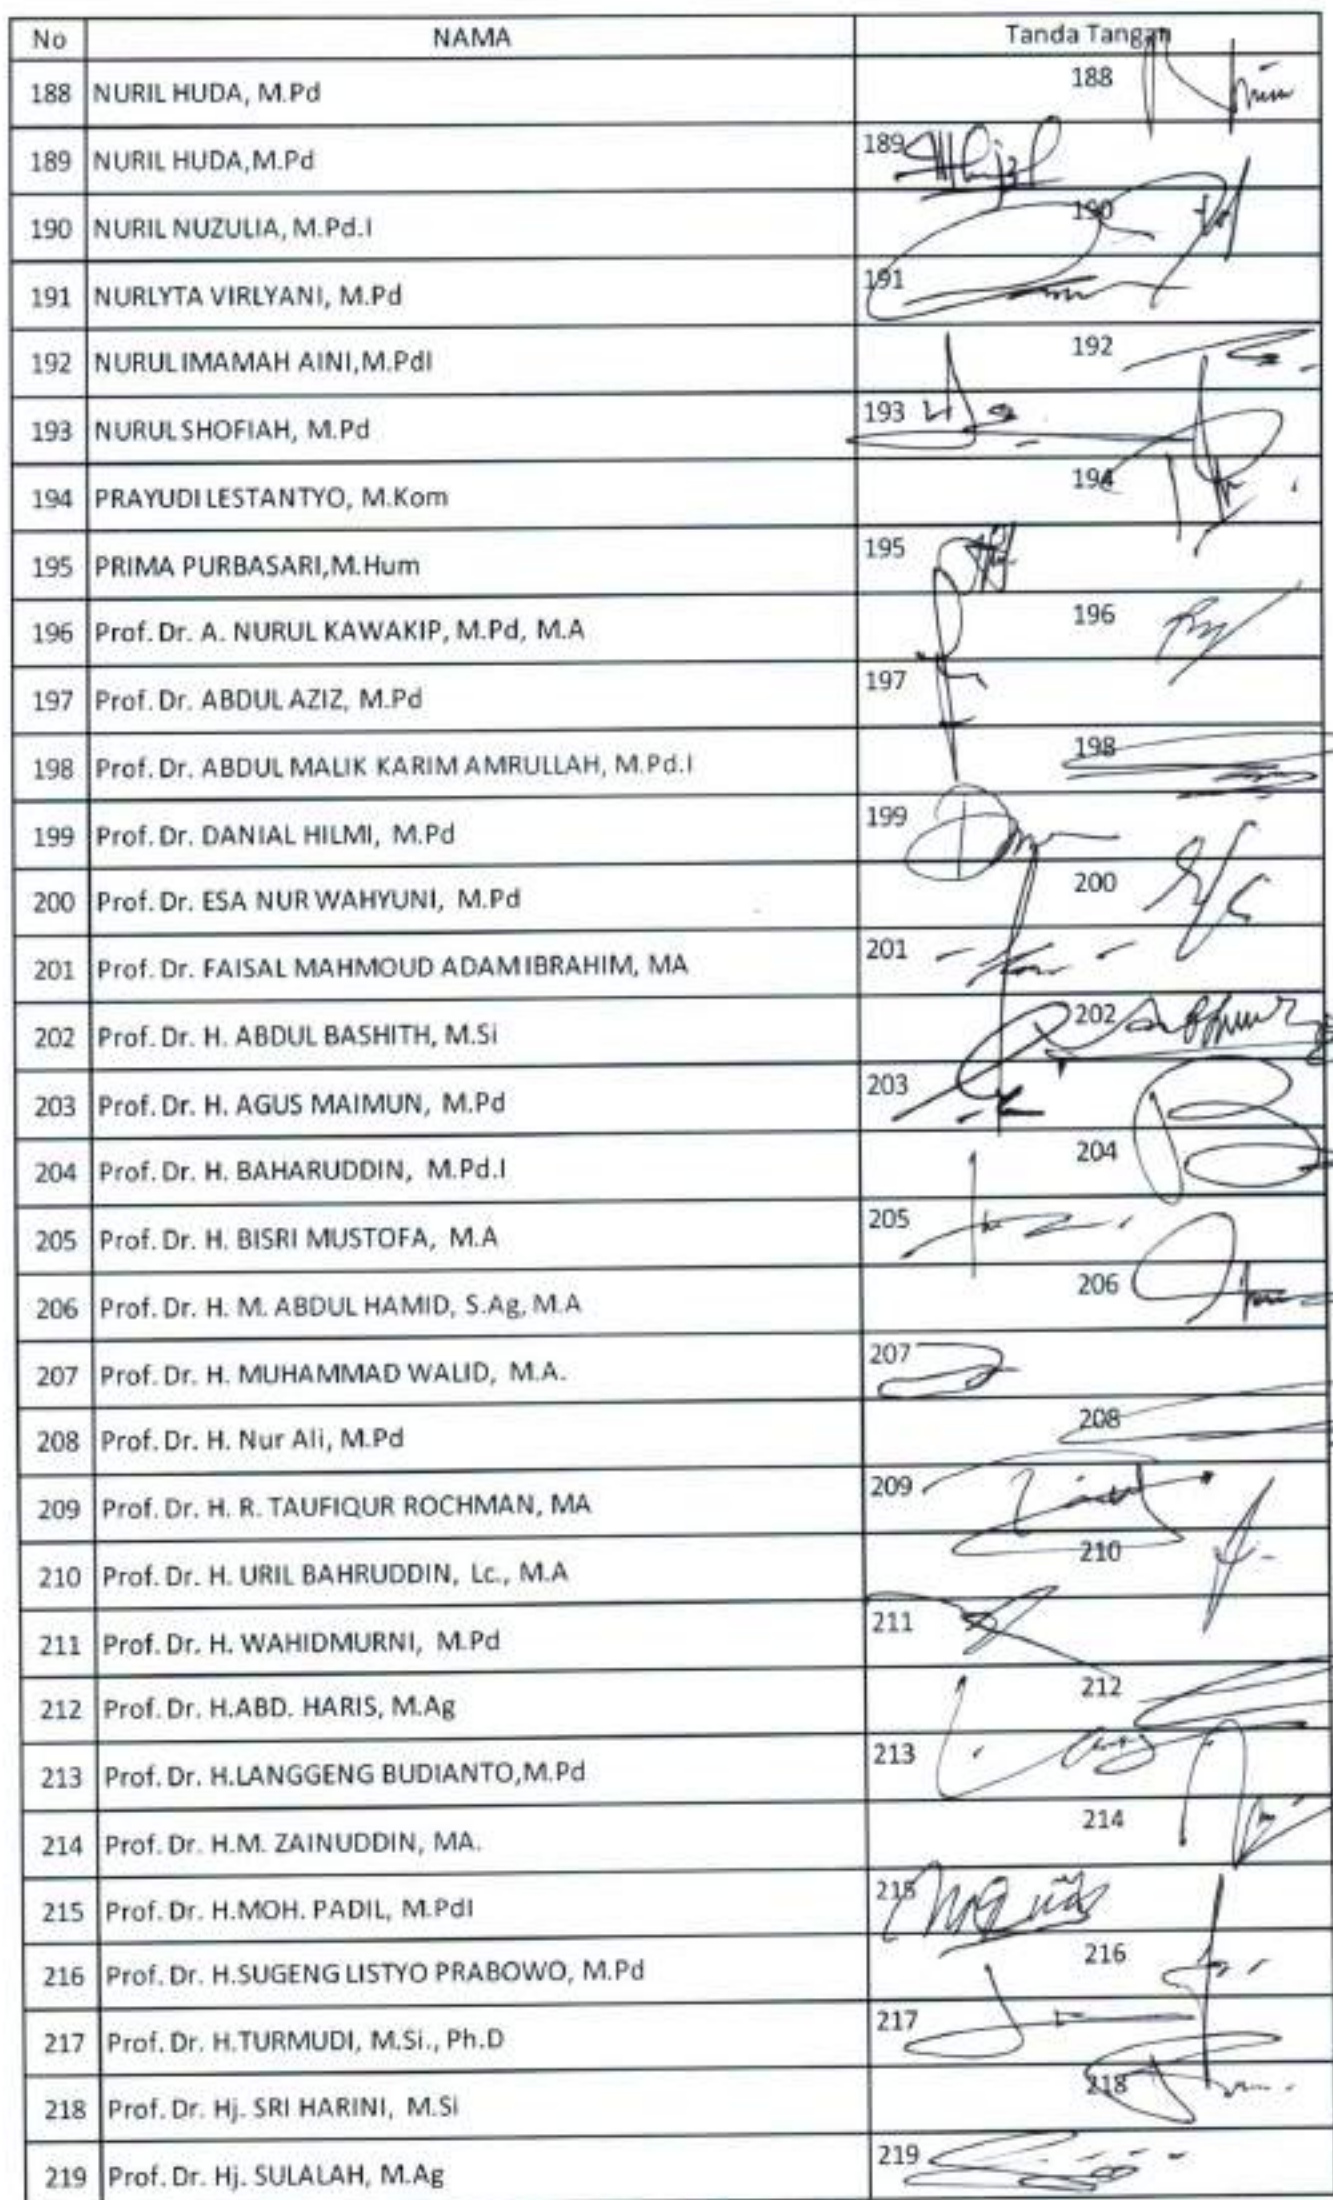 No NAMA Tanda Tangan
188 NURIL HUDA, M.Pd 188
189 NURIL HUDA,M.Pd 189
190 NURIL NUZULIA, M.Pd.I 190
191 NURLYTA VIRLYANI, M.Pd 191
192 NURUL IMAMAH AINI,M.PdI 192
193 NURUL SHOFIAH, M.Pd 193
194 PRAYUDI LESTANTYO, M.Kom 194
195 PRIMA PURBASARI,M.Hum 195
196 Prof. Dr. A. NURUL KAWAKIP, M.Pd, M.A 196
197 Prof. Dr. ABDUL AZIZ, M.Pd 197
198 Prof. Dr. ABDUL MALIK KARIM AMRULLAH, M.Pd.I 198
199 Prof. Dr. DANIAL HILMI, M.Pd 199
200 Prof. Dr. ESA NUR WAHYUNI, M.Pd 200
201 Prof. Dr. FAISAL MAHMOUD ADAM IBRAHIM, MA 201
202 Prof. Dr. H. ABDUL BASHITH, M.Si 202
203 Prof. Dr. H. AGUS MAIMUN, M.Pd 203
204 Prof. Dr. H. BAHARUDDIN, M.Pd.I 204
205 Prof. Dr. H. BISRI MUSTOFA, M.A 205
206 Prof. Dr. H. M. ABDUL HAMID, S.Ag, M.A 206
207 Prof. Dr. H. MUHAMMAD WALID, M.A. 207
208 Prof. Dr. H. Nur Ali, M.Pd 208
209 Prof. Dr. H. R. TAUFIQUR ROCHMAN, MA 209
210 Prof. Dr. H. URIL BAHRUDDIN, Lc., M.A 210
211 Prof. Dr. H. WAHIDMURNI, M.Pd 211
212 Prof. Dr. H.ABD. HARIS, M.Ag 212
213 Prof. Dr. H.LANGGENG BUDIANTO,M.Pd 213
214 Prof. Dr. H.M. ZAINUDDIN, MA. 214
215 Prof. Dr. H.MOH. PADIL, M.PdI 215
216 Prof. Dr. H.SUGENG LISTYO PRABOWO, M.Pd 216
217 Prof. Dr. H.TURMUDI, M.Si., Ph.D 217
218 Prof. Dr. Hj. SRI HARINI, M.Si 218
219 Prof. Dr. Hj. SULALAH, M.Ag 219